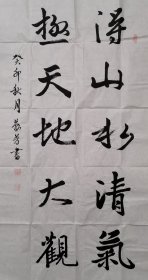 得山水清氣
極天地大觀
癸卯秋月 書